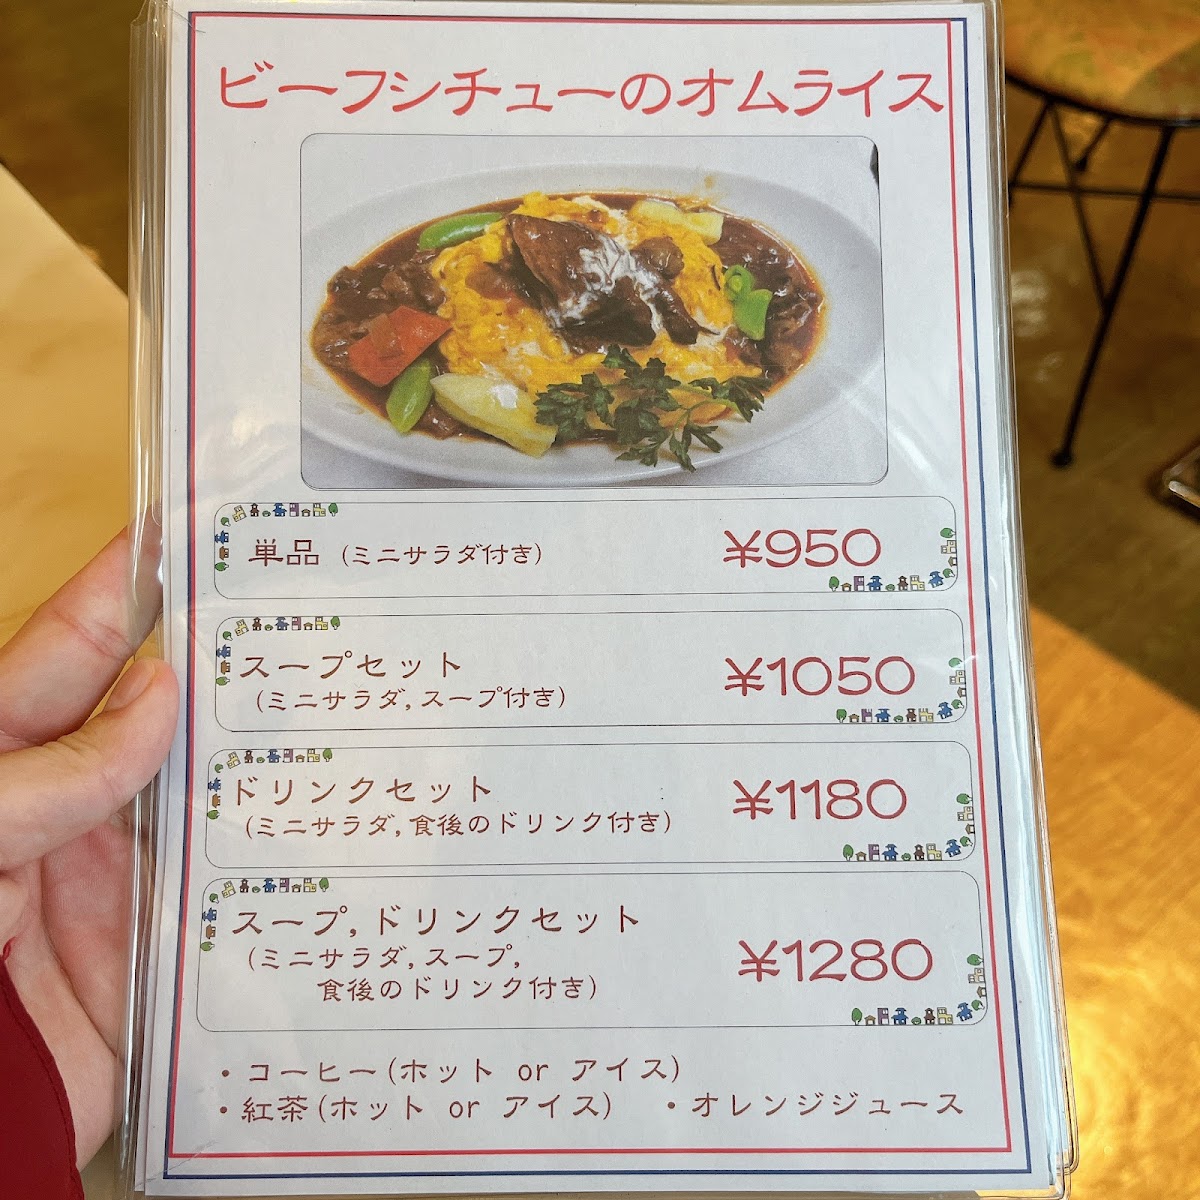 ビーフシチューのオムライス
単品 (ミニサラダ付き) ¥950
スープセット ¥1050
(ミニサラダ, スープ付き)
ドリンクセット ¥1180
(ミニサラダ, 食後のドリンク付き)
スープ, ドリンクセット
(ミニサラダ, スープ, ¥1280
食後のドリンク付き)
・コーヒー(ホット or アイス)
・紅茶(ホット or アイス) ・オレンジジュース